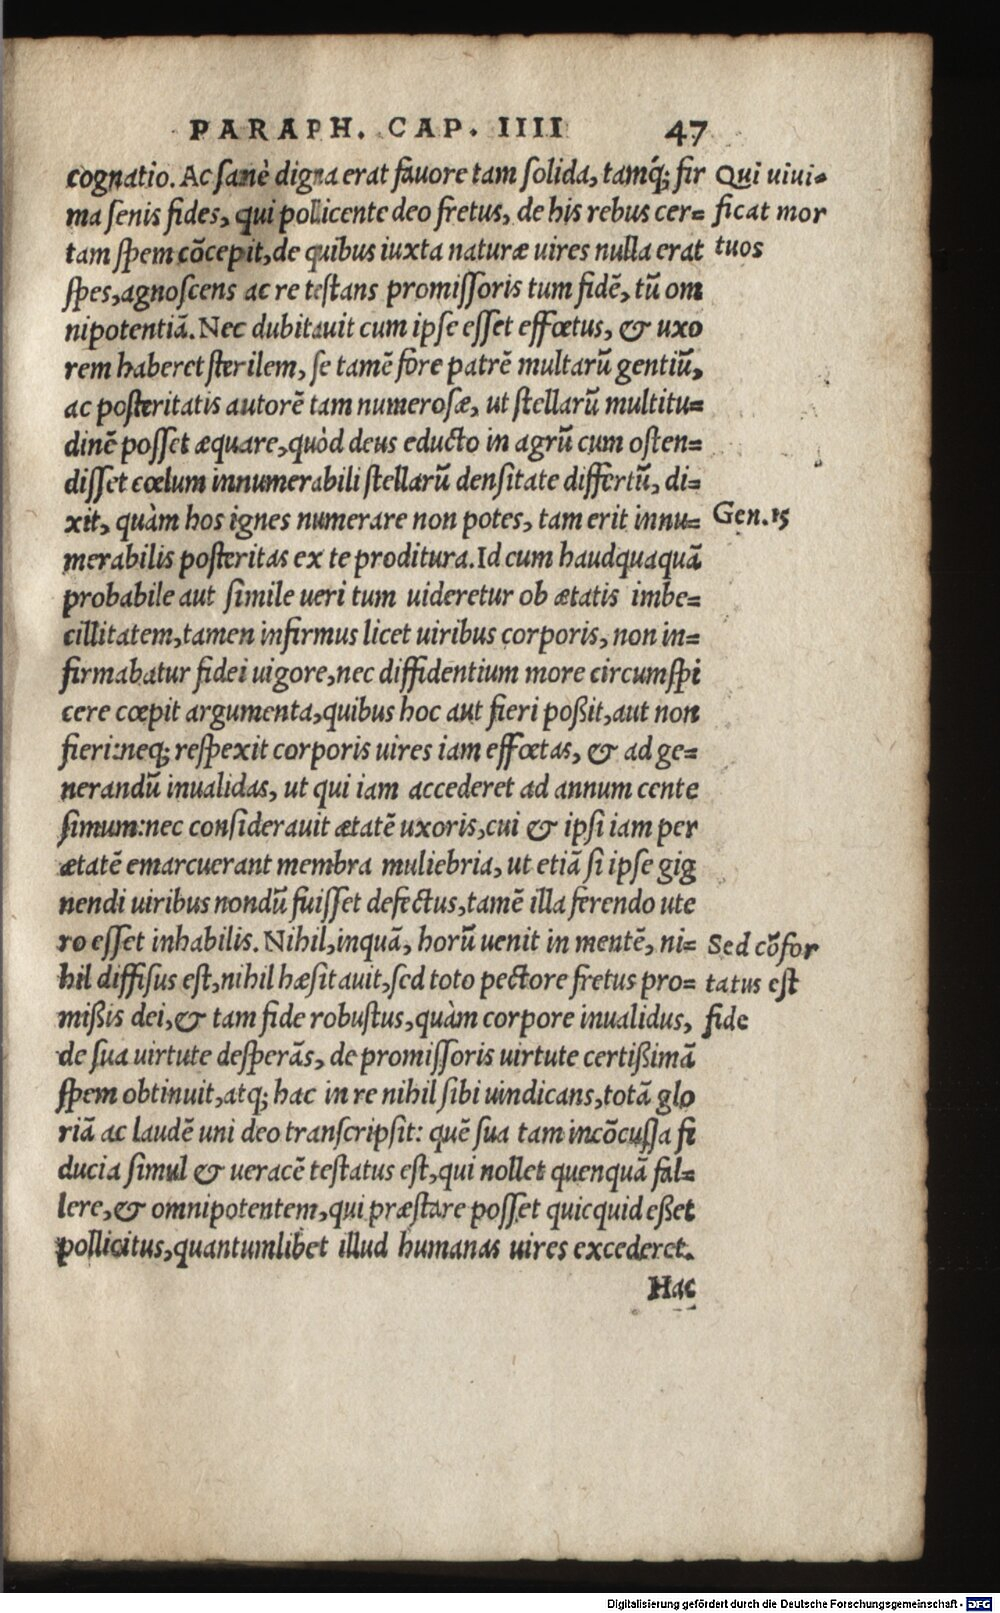 PARAPH. CAP. IIII 47
cognatio. Ac sanè digna erat fauore tam solida, tamq́; fir
ma senis fides, qui pollicente deo fretus, de his rebus cer=
tam spem cōcepit, de quibus iuxta naturæ uires nulla erat
spes, agnoscens ac re testans promissoris tum fidē, tū om
nipotentiā. Nec dubitauit cum ipse esset effœtus, & uxo
rem haberet sterilem, se tamē fore patrē multarū gentiū,
ac posteritatis autorē tam numerosæ, ut stellarū multitu=
dinē posset æquare, quòd deus educto in agrū cum osten=
disset cœlum innumerabili stellarū densitate differtū, di=
xit, quàm hos ignes numerare non potes, tam erit innu=
merabilis posteritas ex te proditura. Id cum haudquaquā
probabile aut simile ueri tum uideretur ob ætatis imbe=
cillitatem, tamen infirmus licet uiribus corporis, non in=
firmabatur fidei uigore, nec diffidentium more circumspi
cere cœpit argumenta, quibus hoc aut fieri poßit, aut non
fieri: neq; respexit corporis uires iam effœtas, & ad ge=
nerandū inualidas, ut qui iam accederet ad annum cente
simum: nec considerauit ætatē uxoris, cui & ipsi iam per
ætatē emarcuerant membra muliebria, ut etiā si ipse gig
nendi uiribus nondū fuisset defectus, tamē illa ferendo ute
ro esset inhabilis. Nihil, inquā, horū uenit in mentē, ni=
hil diffisus est, nihil hæsitauit, sed toto pectore fretus pro=
mißis dei, & tam fide robustus, quàm corpore inualidus,
de sua uirtute desperās, de promissoris uirtute certißimā
spem obtinuit, atq; hac in re nihil sibi uindicans, totā glo
riā ac laudē uni deo transcripsit: quē sua tam incōcussa fi
ducia simul & ueracē testatus est, qui nollet quenquā fal=
lere, & omnipotentem, qui præstare posset quicquid eßet
pollicitus, quantumlibet illud humanas uires excederet.
Hac
Qui uiui=
ficat mor
tuos
Gen. 15
Sed cōfor
tatus est
fide
Digitalisierung gefördert durch die Deutsche Forschungsgemeinschaft - DFG